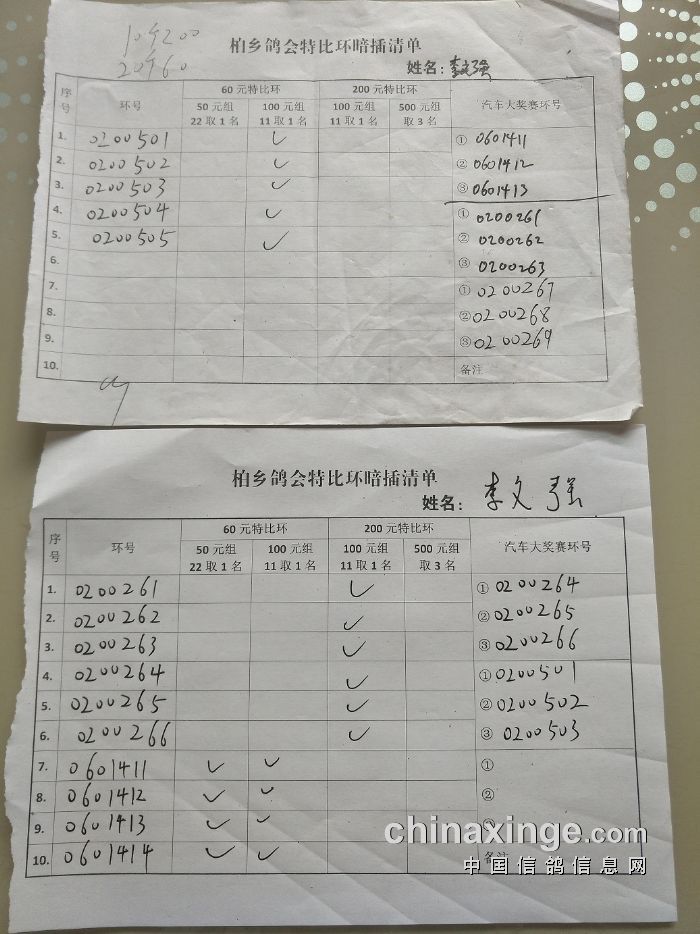 10个200
20个60
柏乡鸽会特比环暗插清单
姓名：李文强
序号 环号 60元特比环 200元特比环 汽车大奖赛环号
50元组 22取1名 100元组 11取1名 100元组 11取1名 500元组 取3名
1. 0200501 ✓ ① 0601411
2. 0200502 ✓ ② 0601412
3. 0200503 ✓ ③ 0601413
4. 0200504 ✓ ① 0200261
5. 0200505 ✓ ② 0200262
6. ③ 0200263
7. ① 0200267
8. ② 0200268
9. ③ 0200269
10. 备注
柏乡鸽会特比环暗插清单
姓名：李文强
序号 环号 60元特比环 200元特比环 汽车大奖赛环号
50元组 22取1名 100元组 11取1名 100元组 11取1名 500元组 取3名
1. 0200261 ✓ ① 0200264
2. 0200262 ✓ ② 0200265
3. 0200263 ✓ ③ 0200266
4. 0200264 ✓ ① 0200501
5. 0200265 ✓ ② 0200502
6. 0200266 ✓ ③ 0200503
7. 0601411 ✓ ✓ ①
8. 0601412 ✓ ✓ ②
9. 0601413 ✓ ✓ ③
10. 0601414 ✓ ✓ 备注
chinaxinge.com
中国信鸽信息网